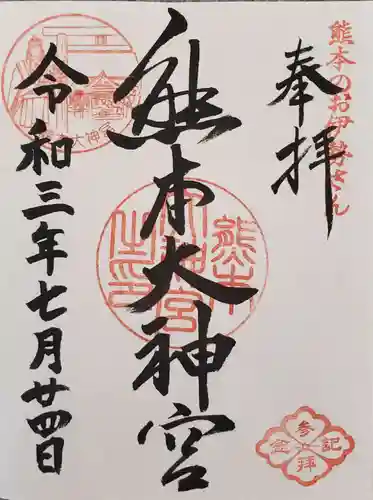 熊本のお伊勢さん
奉拝
熊本大神宮
令和三年七月廿四日
熊本
大神宮
之印
参拝記念